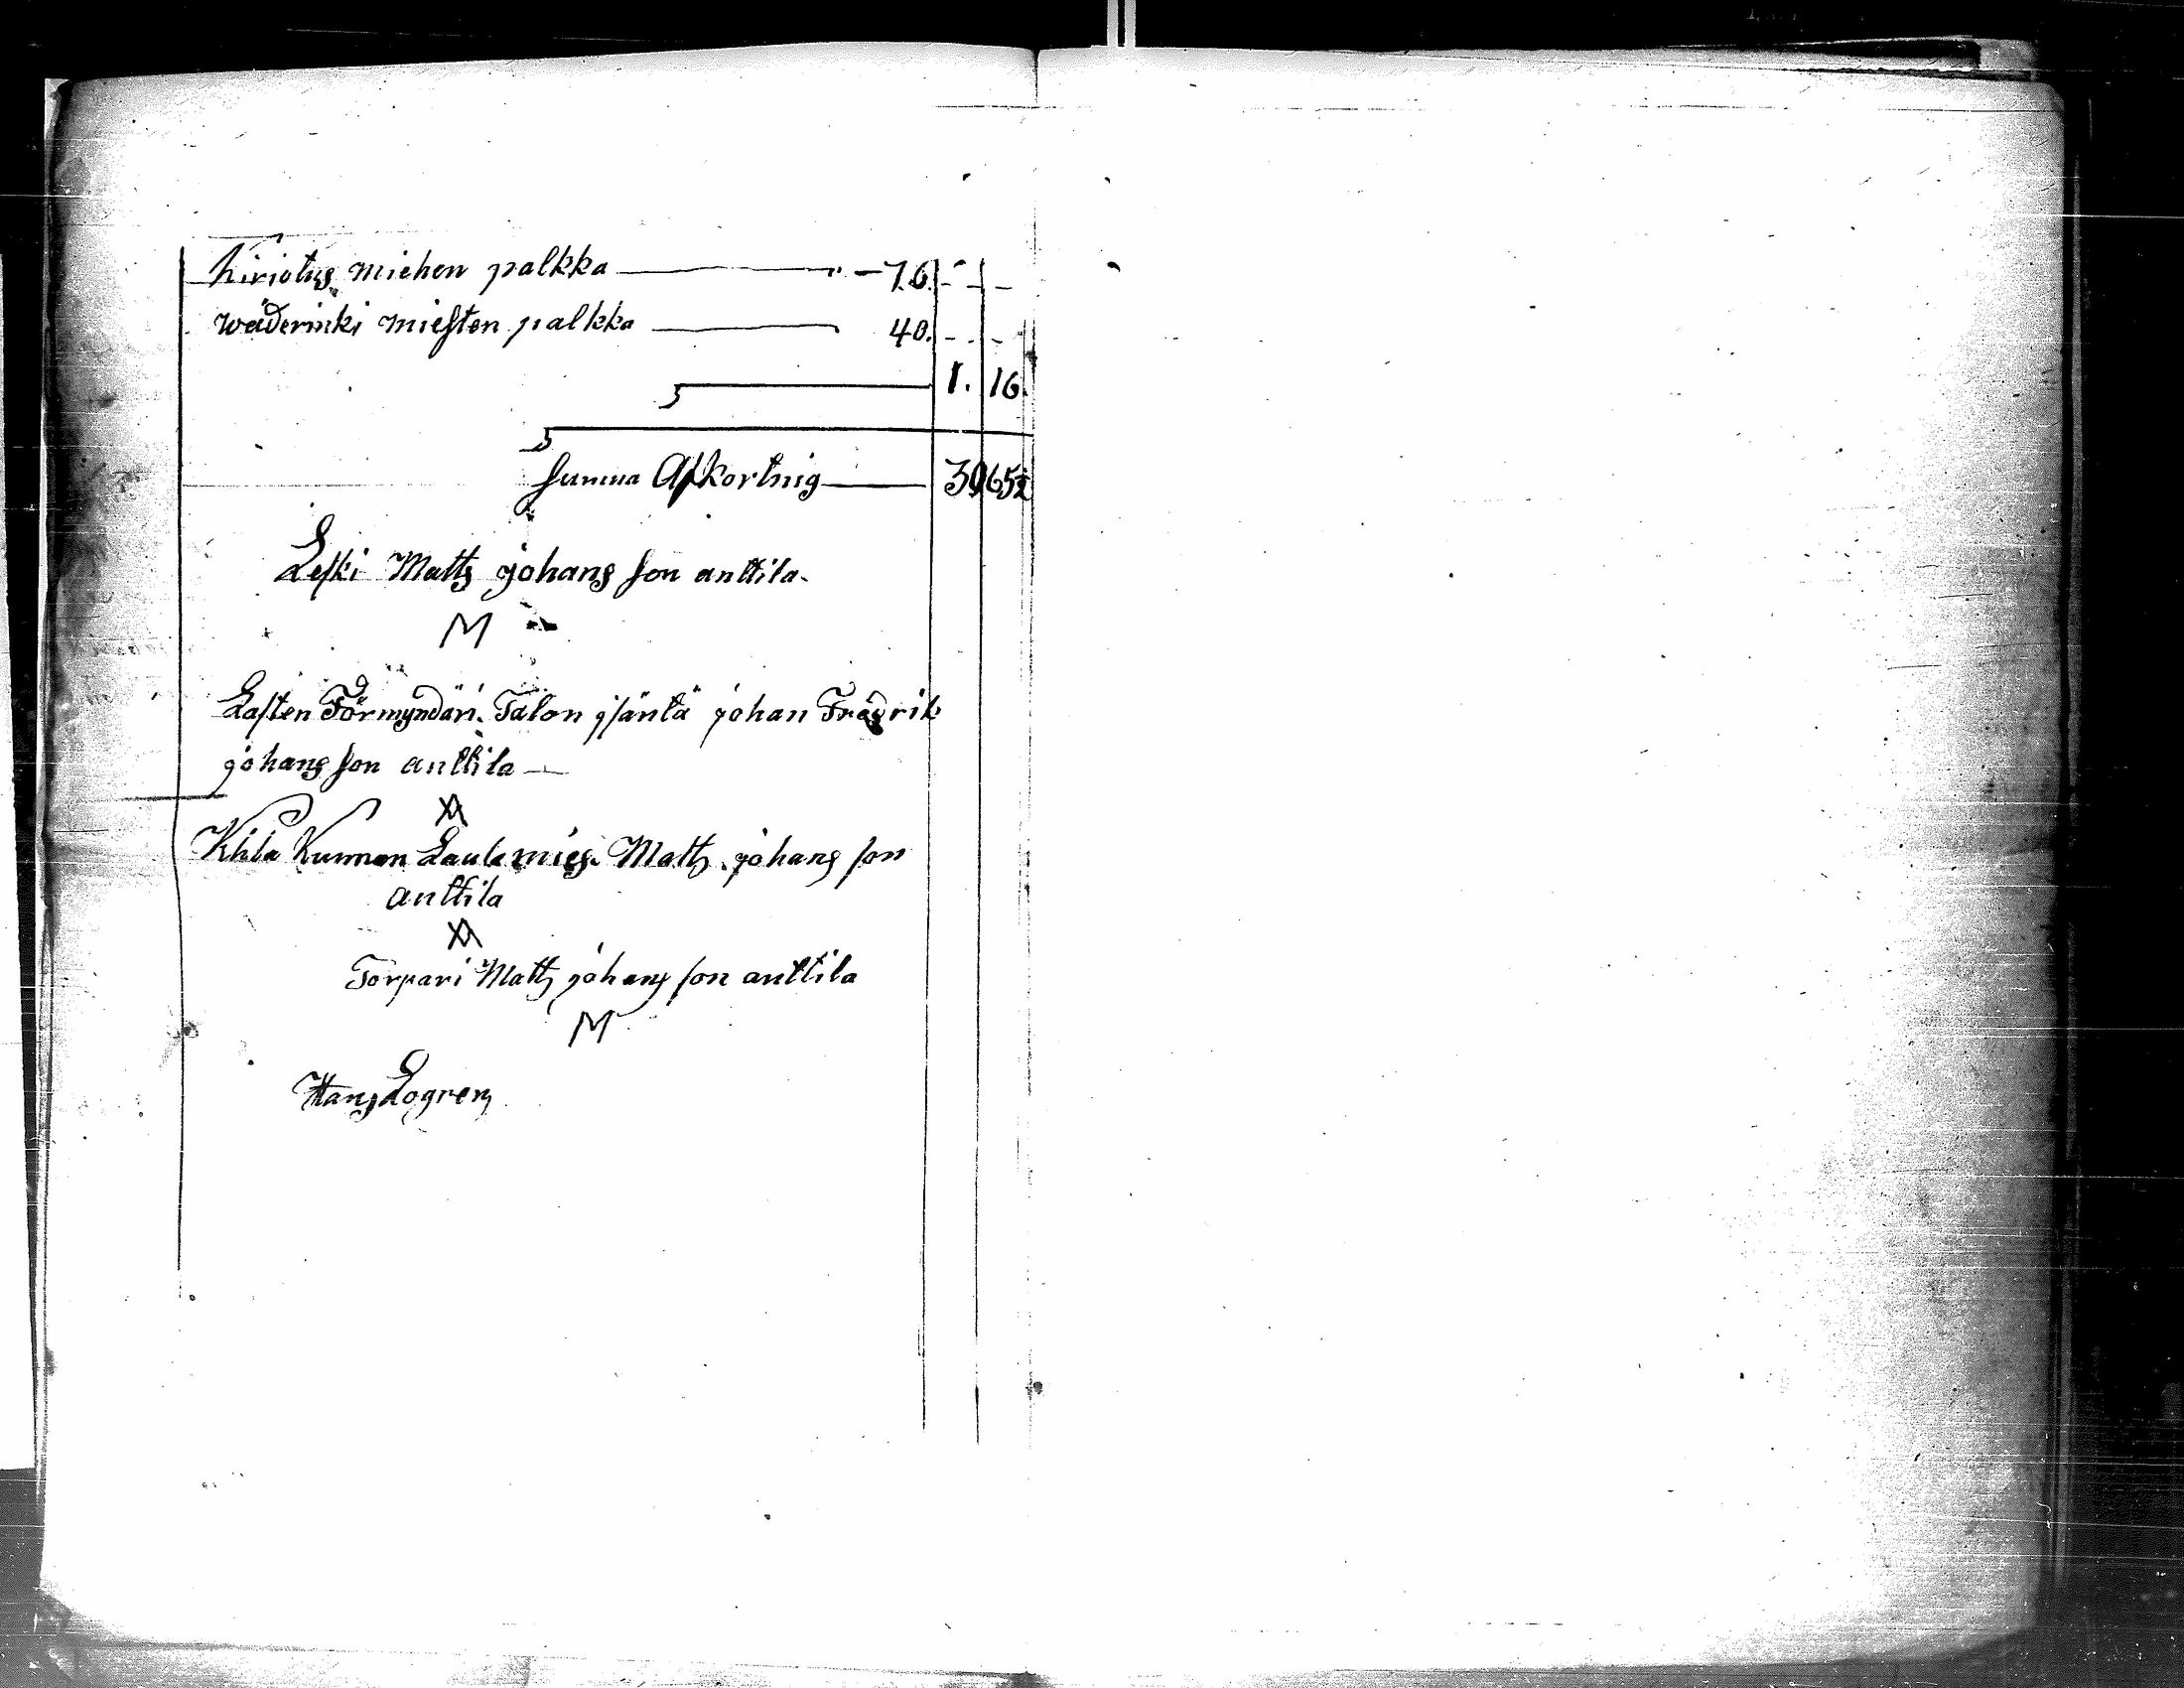 Kiriotus miehen palkka — " — 76. - - -
wäderinki miesten palkka — 40. - - -
1. 16.
Summa Afkortnig — 39 65½
Leski Matts johans son anttila.
M
Lasten Förmyndäri. Talon jsäntä johan Fredrik
johans son anttila —
Kihla Kunnan Lautamies. Matts johans son
anttila
Torpari Matts johans son anttila
M
Hans Logren